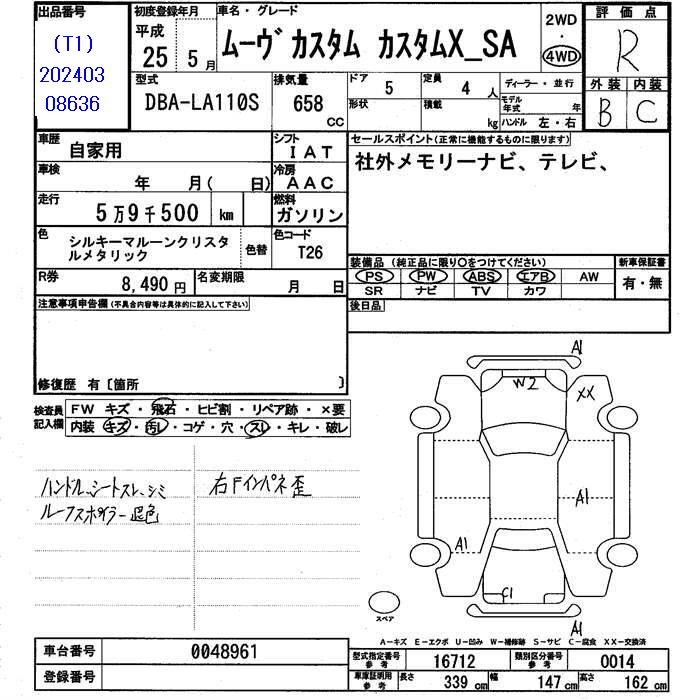 出品番号
(T1)
202403
08636
初度登録年月
平成
25 5月
車名・グレード
ムーヴ カスタム カスタムX_SA
2WD
・
4WD
評価点
R
外装 内装
B C
型式
DBA-LA110S
排気量
658
cc
ドア
5
定員
4人
形状
積載
kg
ディーラー・並行
モデル年式 年
ハンドル 左・右
車歴
自家用
シフト
IAT
車検
年 月( 日)
冷房
AAC
走行
5万9千500 km
燃料
ガソリン
色
シルキーマルーンクリスタ
ルメタリック
色替
色コード
T26
R券
8,490円
名変期限
月 日
セールスポイント(正常に機能するものに限ります)
社外メモリーナビ、テレビ、
装備品 (純正品に限り○をつけてください)
PS PW ABS エアB AW
SR ナビ TV カワ
新車保証書
有・無
後日品
注意事項申告欄(不具合内容等は具体的に記入して下さい)
修復歴 有〔箇所 〕
検査員
記入欄
FW キズ・飛石・ヒビ割・リペア跡・×要
内装 キズ・汚レ・コゲ・穴・スレ・キレ・破レ
ハンドル、シートスレ、シミ
ルーフスポイラー退色
右Fインパネ歪
A1
W2
XX
A1
A1
C1
A1
スペア
A−キズ E−エクボ U−凹み W−補修跡 S−サビ C−腐食 XX−交換済
車台番号
0048961
登録番号
型式指定番号
参考
16712
類別区分番号
参考
0014
車庫証明用
参考
長さ
339 cm
幅
147 cm
高さ
162 cm